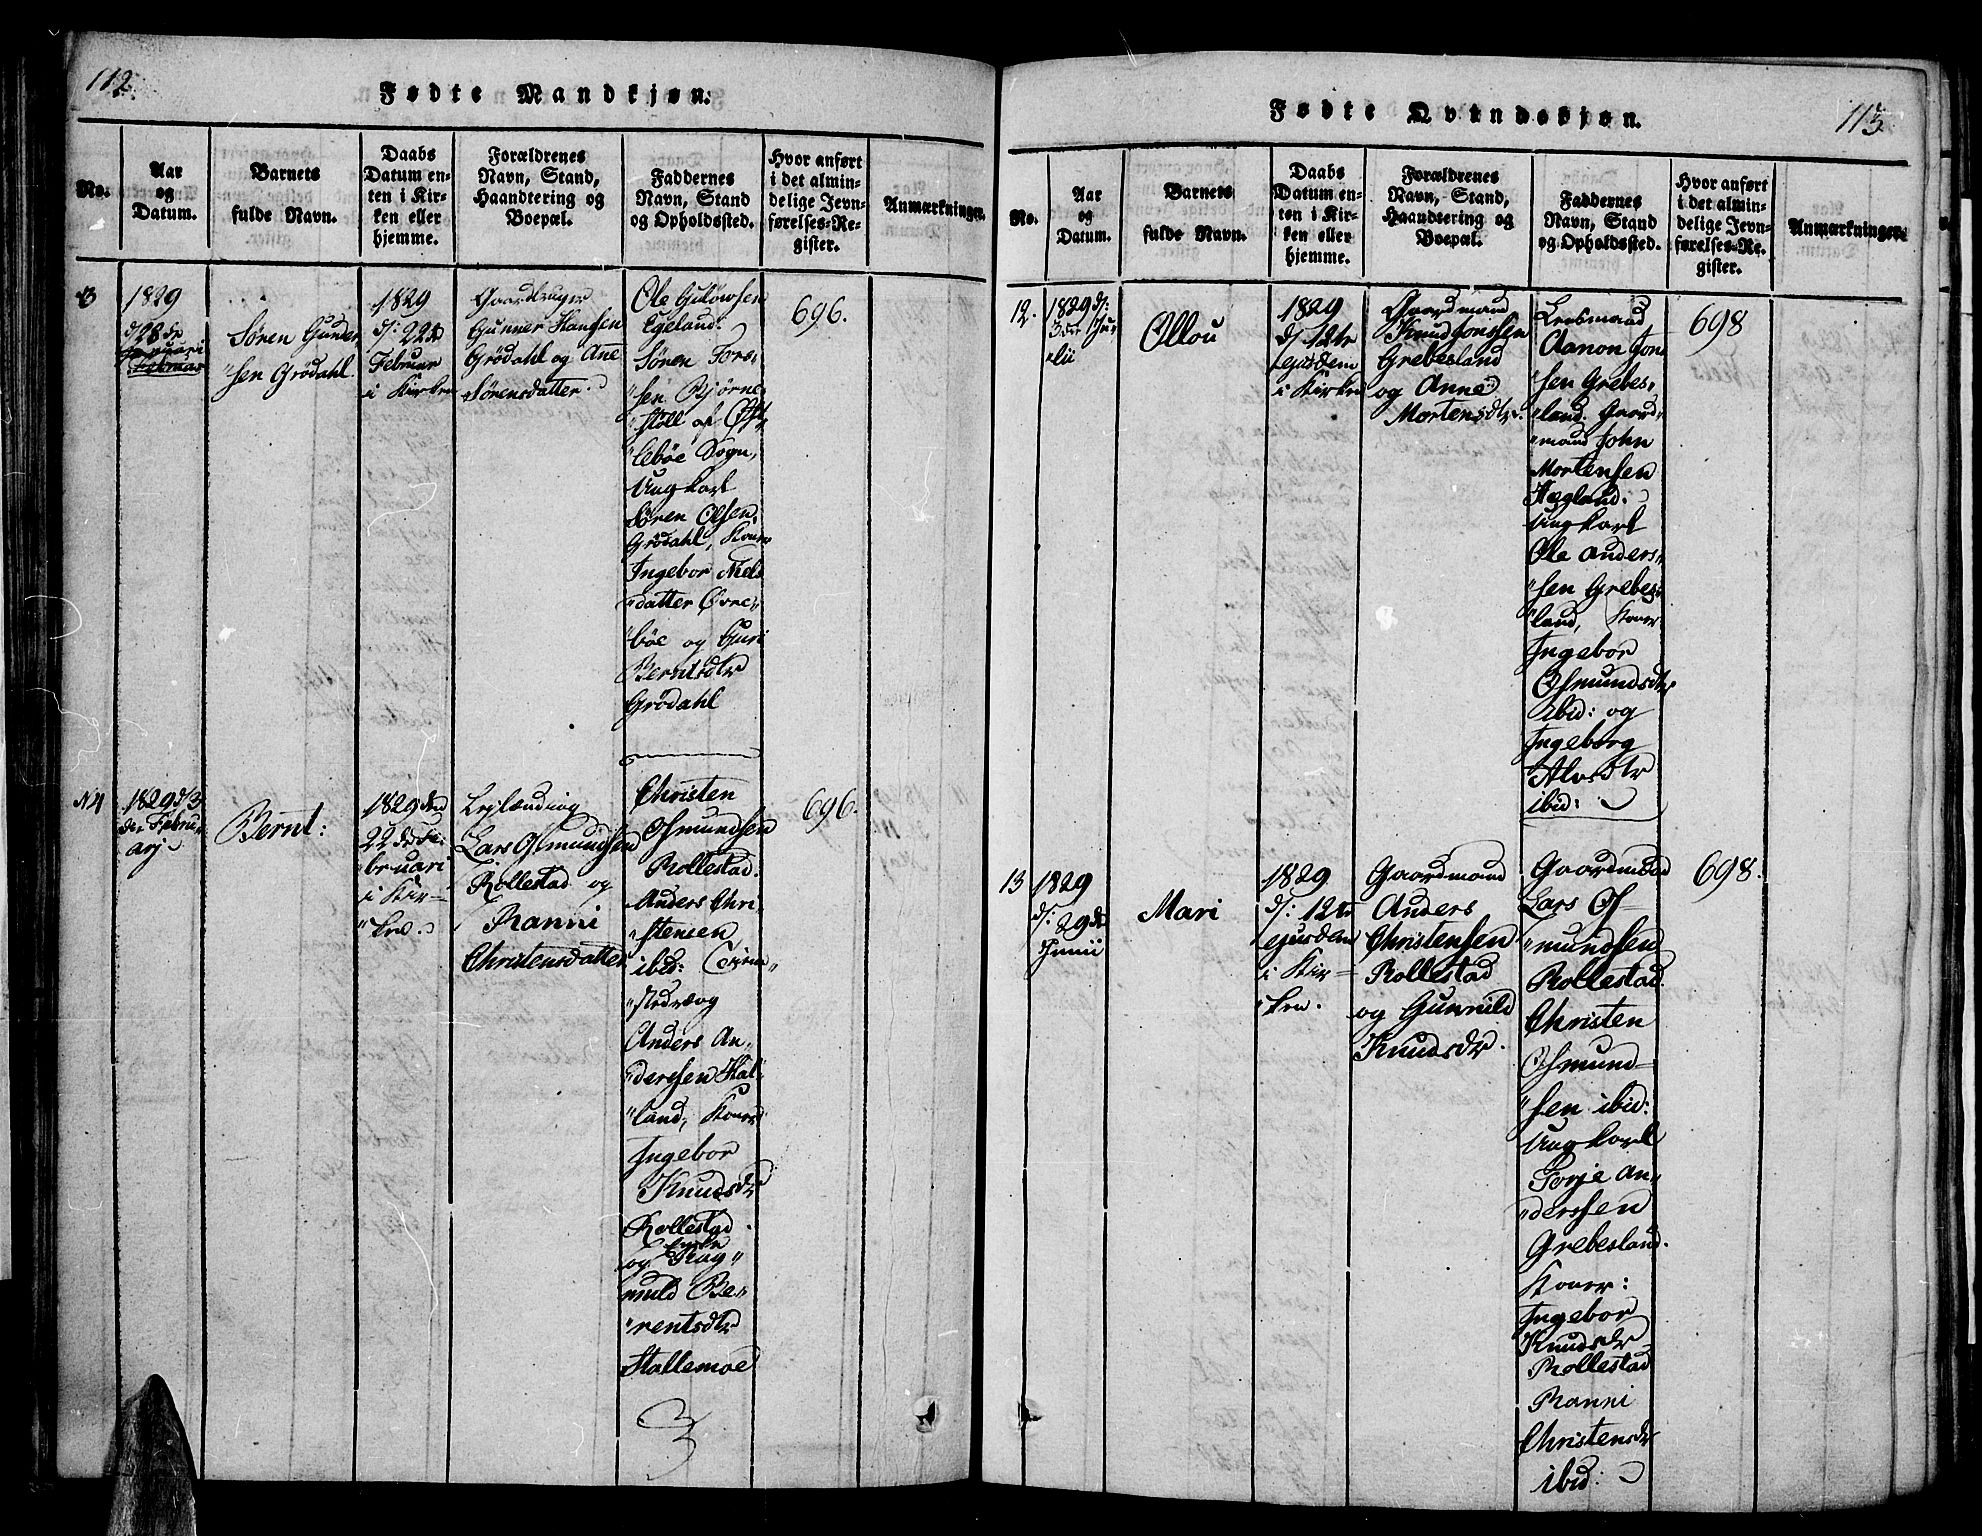 112.
Fødte Mandkjøn.
No.
Aar
og
Datum.
Barnets
fulde Navn.
Daabs
Datum en-
ten i Kir-
ken eller
hjemme.
Forældrenes
Navn, Stand,
Haandtering og
Boepæl.
Faddernes
Navn, Stand
og Opholdssted.
Hvor anført
i det almin-
delige Jevn-
førelses-Re-
gister.
Anmærkninger.
3
1829
d/28de
Januari
Februar
Sören Gunder
"sen Grödahl.
1829
d/: 22de
Februar
i Kirken
Gaardbruger
Gunner Hansen
Grödahl og Ane
Sörensdatter.
Ole
Egeland.
Sören Tors
"sen Bjørne
"stöll af Øft
"lebøe Sogn,
Ungkarl
Sören Olsen
Grödahl, Kone
Ingebor Niels
"datter Øvre"
"bøe og Guri
Berntsdtr
Grödahl
696.
N 4
1829 d/3
die Febru
arj
Bernt:
1829 den
22de Fe
"bruari
i Kir=
"ken.
Leylænding
Lars Osmundsen
Röllestad og
Ranni
Christensdatter
Christen
Osmundsen
Rollestad.
Anders Chri
"stensen
ibid:
Anders An"
"dersen Hal"
"land, Kone
Ingebor
Knudsdtr
Rollestad
og Rag"
"nild Be"
"rentsdtr
Stallemoe
696.
115
Fødte Qvindekjøn.
No.
Aar
og
Datum.
Barnets
fulde Navn.
Daabs
Datum en-
ten i Kir-
ken eller
hjemme.
Forældrenes
Navn, Stand,
Haandtering og
Boepæl.
Faddernes
Navn, Stand
og Opholdssted.
Hvor anført
i det almin-
delige Jevn-
førelses-Re-
gister.
Anmærkninger.
12.
1829 d/:
3die Ju
"lii
Ollou
1829
d/ 12te
ejusdem
i Kirken
Gaardmand
Knud Jonssen
Grebesland
og Anne
Mortensdtr.
Aanon Jon
"sen Grebes"
"land. Gaard"
"mand John
Mortensen
Hægland.
Ungkarl
Ole Anders"
"sen Grebes"
"land, Kone
Ingebor
Osmundsdtr
ibid: og
Ingeborg
Alvsdtr
ibid:
698
13
1829
d/: 29de
Junii
Mari
1829
d/: 12te
ejusdem
i Kir=
"ken.
Gaardmand
Anders
Christensen
Rollestad
og Gunnild
Knudsdtr.
Gaardmand
Lars Os
"mundsen
Rollestad.
Christen
Osmund=
"sen ibid:
Ungkarl
Torje An"
"dersen
Grebesland.
Koner:
Ingebor
Knudsdtr
Rollestad
Ranni
Christensdtr
ibid:
698.